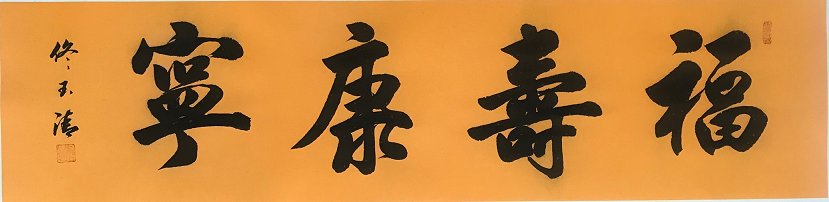 福壽康寧
佟玉清